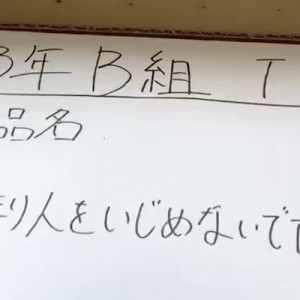 3年 B組 T
品名
り人をいじめないで